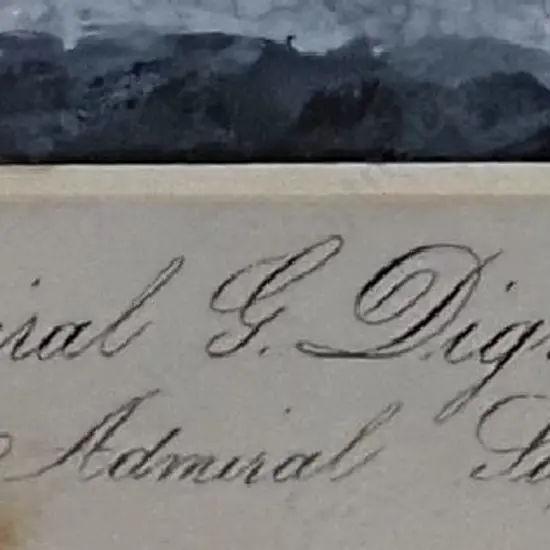 iral G. Dig
Admiral